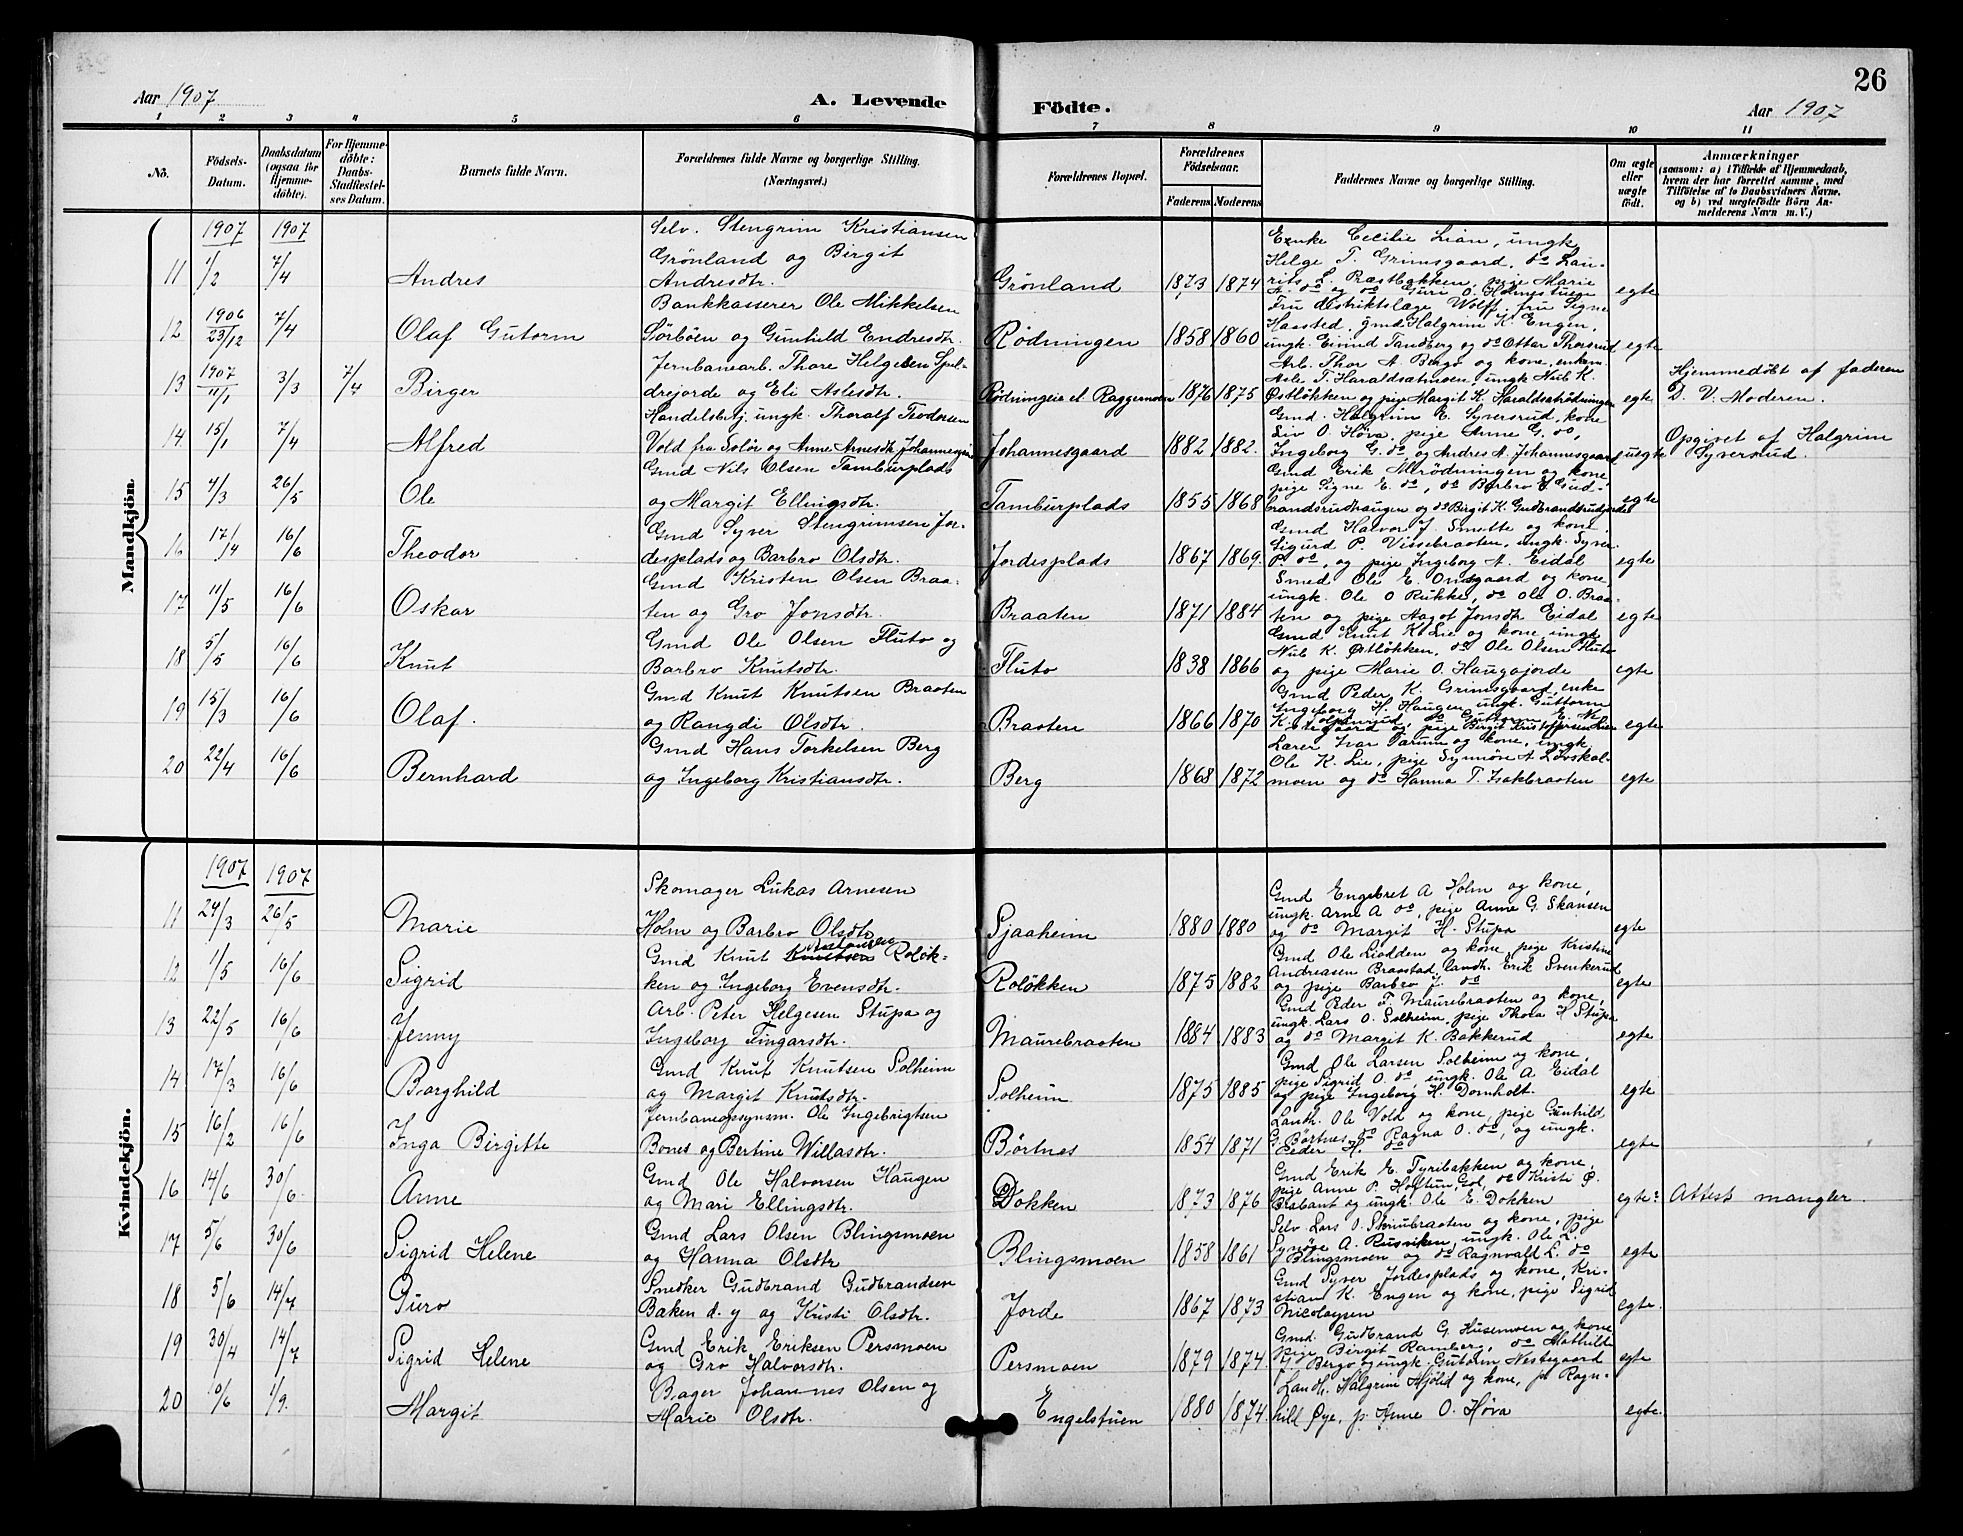 26
Aar 1907
A. Levende
Födte.
Aar 1907
1 2 3 4 5 6 7 8 9 10 11
No.
Födsels-Datum.
Daabsdatum (ogsaa for Hjemme-döbte).
For Hjemme-döbte: Daabs-Stadfæstel-ses Datum.
Barnets fulde Navn.
Forældrenes fulde Navne og borgerlige Stilling.
(Næringsvei.)
Forældrenes Bopæl.
Forældrenes Födselsaar.
Faderens Moderens
Faddernes Navne og borgerlige Stilling.
Om ægte eller uægte födt.
Anmærkninger
(saasom: a) i Tilfælde af Hjemmedaab,
hvem der har forrettet samme, med
Tilföielse af to Daabsvidners Navne,
og b) ved uægtefödte Börn An-
melderens Navn m. V.)
Mandkjön
1907 1907
11 1/2 7/4 Andres
Selv. Stengrim Kristiansen
Grönland og Birgit
Andresdtr.
Grönland 1873 1874
Enke Cecilie Lian, ungk
Helge T. Grimsgaard, do Lau-
rits L. Ræstbakken, pige Marie
A. do og do Guri O. Holmestuen
egte
1906
12 23/12 7/4 Olaf Gutorm
Bankkasserer Ole Mikkelsen
Sörböen og Gunhild Endresdtr.
Rödningen 1858 1860
Fru distriktslæge Wolff, fru Signe
Haasted, gmd Halgrim K. Engen,
ungk. Eivind Tandberg og do Ottar Thorsrud
egte
1907
13 11/1 3/3 7/4 Birger
Jernbanearb. Thore Helgesen Spil-
drejorde og Eli Aslesdtr.
Rödningeie el. Raggermoen 1876 1875
Arb. Thor A Bergo og kone, enkem.
Asle T. Haraldsatmoen, ungk Nub K.
Östlökken og pige Margit K. Haraldsetrödningen
egte
Hjemmedöbt af faderen
D. V. Moderen.
14 15/1 7/4 Alfred
Handelsbetj. ungk. Thoralf Teodorsen
Vold fra Solör og Anne Arnesdtr Johannesgaard
Johannesgaard 1882 1882.
Gmd. Halgrim E. Syversrud, kone
Liv O. Höva, pige Anne G. do,
Ingeborg G. do, og Andres A. Johannesgaard
uegte
Opgivet af Halgrim
Syversrud.
15 4/3 26/5 Ole
Gmd Nils Olsen Tamburplads
og Margit Ellingsdtr.
Tamburplads 1855 1868
Gmd Erik Illrödningen og kone,
pige Signe E. do, do Barbro E Gud-
brandsrudhaugen og do Birgit K. Gudbrandsrudjordet
egte
16 17/4 16/6 Theodor
Gmd Syver Stengrimsen Jor-
desplads og Barbro Olsdtr.
Jordesplads 1867 1869.
Gmd Halvor J. Smette og kone
Sigurd P. Vissebraaten, ungk. Syver
P. do, og pige Ingeborg A. Eidal
egte
17 11/5 16/6 Oskar
Gmd Kristen Olsen Braa-
ten og Gro Jonsdtr.
Braaten 1871 1884
Smed Ole E. Omsgaard og kone,
ungk. Ole O Rukke, do Ole O. Braa-
ten og pige Aagot Jonsdtr Eidal
egte
18 5/5 16/6 Knut
Gmd Ole Olsen Fluto og
Barbro Knutsdtr.
Fluto 1838 1866
Gmd Knut K. Lie og kone, ungk
Nub K. Östlökken, do Ole Olsen Fluto
og pige Marie O. Haugajorde
egte
19 15/3 16/6 Olaf.
Gmd Knut Knutsen Braaten
og Rangdi Olsdtr.
Braaten 1866 1870
Gmd Peder K. Grimsgaard, enke
Ingeborg H. Haugen, ungk. Guttorm
egte
20 22/4 16/6 Bernhard
Gmd Hans Torkelsen Berg
og Ingeborg Kristiansdtr.
Berg 1868 1872
Lærer Ivar Parum og kone, ungk
Ole K. Lie, pige Synnöve A Lövskol-
moen og do Hanna T. Isakbraaten
egte
Kvindekjön.
1907 1907
11 24/3 26/5 Marie
Skomager Lukas Arnesen
Holm og Barbro Olsdtr
Sjaaheim 1880 1880
Gmd Engebret A Holm og kone,
ungk. Arne A do, pige Anne G. Skansen
og do Margit H. Stupa
egte
12 1/5 16/6 Sigrid
Gmd Knut Rolök-
ken og Ingeborg Evensdtr.
Rolökken 1875 1882
Gmd Ole Liodden og kone, pige Kristine
Andreasen Braastad, landh. Erik Svenkerud
og pige Barbro J. do
egte
13 22/5 16/6 Jenny
Arb. Peter Helgesen Stupa og
Ingeborg Fingarsdtr.
Maurebraaten 1884 1883
Gmd Peder F. Maurebraaten og kone,
ungk. Lars O. Solheim, pige Thora H Stupa
og do Margit K. Bakkerud
egte
14 17/3 16/6 Borghild
Gmd Knut Knutsen Solheim
og Margit Knutsdtr.
Solheim 1875 1885
Gmd Ole Larsen Solheim og kone,
pige Sigrid O. do, ungk. Ole A Eidal
og pige Ingeborg H. Domholt.
egte
15 16/2 16/6 Inga Birgitte
Jernbaneopsynsm. Ole Ingebrigtsen
Bones og Bertine Willasdtr.
Börtnes 1854 1871
Landh. Ole Vold og kone, pige Gunhild
G. Börtnes, do Ragna O. do, og ungk.
Peder H. do
egte
16 14/6 30/6. Anne
Gmd Ole Halvorsen Haugen
og Mari Ellingsdtr.
Dokken 1873 1876
Gmd Erik E. Tyribakken og kone,
pige Anne P. Holtun, Gol, do Kristi Ö.
Brabant og ungk. Ole E. Dokken
egte?
Attest mangler.
17 5/6 30/6 Sigrid Helene
Gmd Lars Olsen Blingsmoen
og Hanna Olsdtr
Blingsmoen 1858 1861
Selv. Lars O. Skrinbraaten og kone, pige
Synöve A. Rusviken, ungk. Ole L.
Blingsmoen og do Ragnvald L. do
egte
18 5/6 14/7 Guro
Snedker Gudbrand Gudbrandsen
Baken d. y og Kristi Olsdtr.
Jorde 1867 1873
Gmd Syver Jordesplads og kone, Kri-
stian K. Engen og kone, pige Sigrid
Nicolaysen
egte.
19 30/4 14/7 Sigrid Helene
Gmd Erik Eriksen Persmoen
og Gro Halvorsdtr.
Persmoen 1879 1874
Gmd. Gudbrand G. Husemoen og kone
pige Birgit Ramberg, do Mathilde
G. Bergo og ungk. Gutorm Nestegaard
egte
20 10/6 1/9. Margit
Bager Johannes Olsen og
Marie Olsdtr.
Engelstuen 1880 1874
Landh. Halgrim Mjölid og kone, p. Ragn-
hild Öye, p. Anne O. Höva
egte.